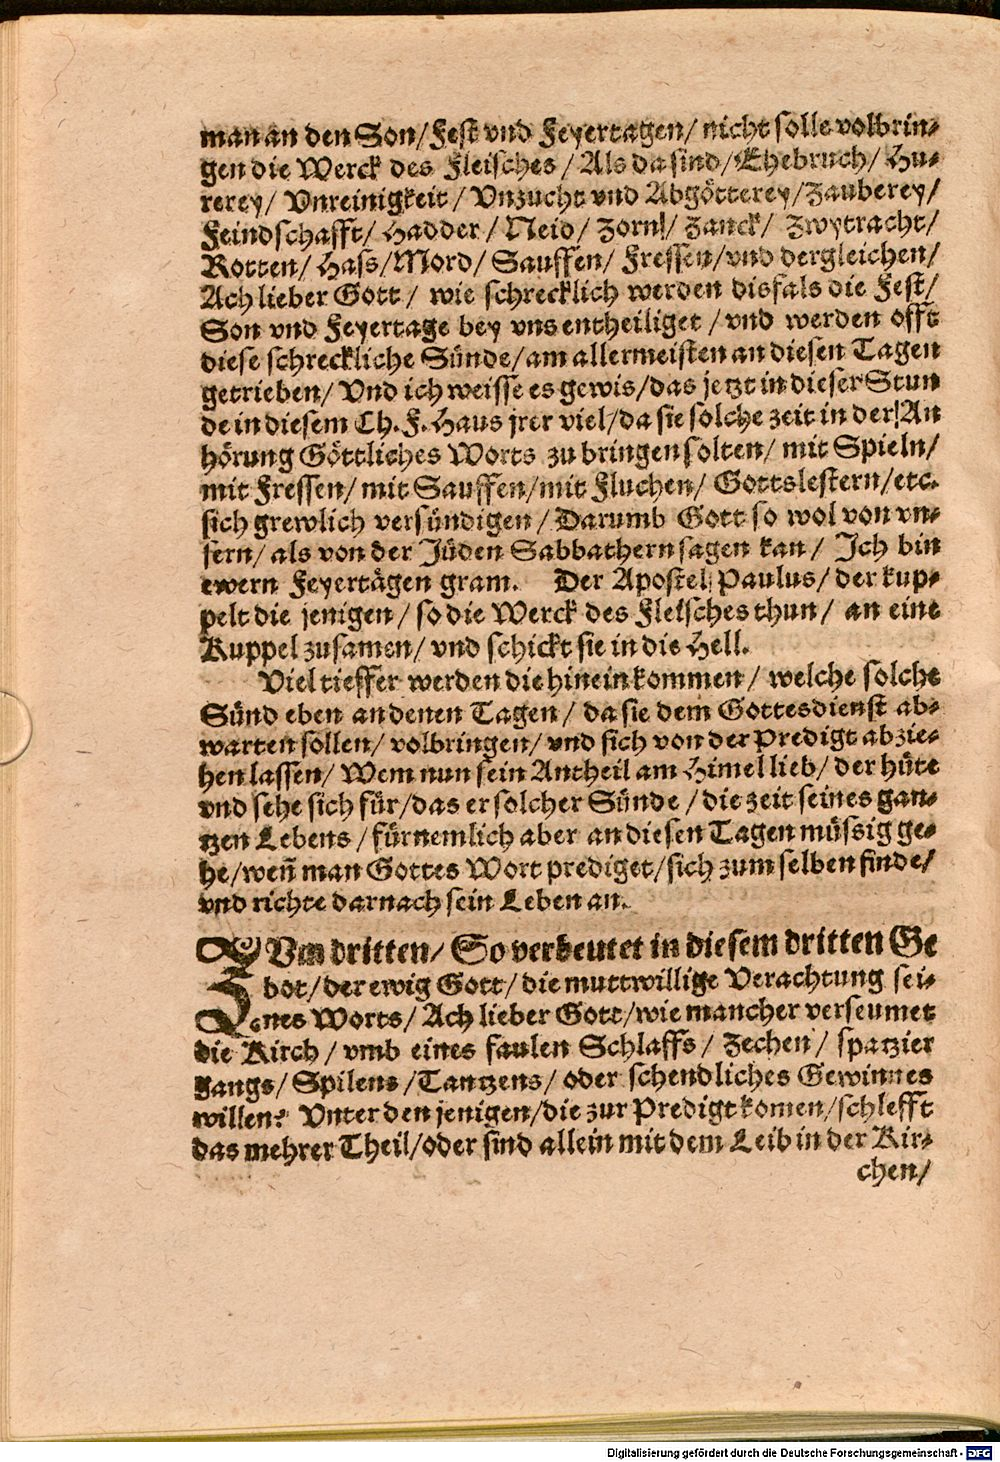 man an den Son/Fest vnd Feyertagen/ nicht solle volbrin-
gen die Werck des Fleisches / Als da sind/Ehebruch/ Hu-
rerey/ Vnreinigkeit / Vnzucht vnd Abgötterey/Zauberey/
Feindschafft/ Hadder / Neid/ Zorn/ Zanck/ Zwytracht/
Rotten/ Hass/Mord/ Sauffen/ Fressen/vnd dergleichen/
Ach lieber Gott / wie schrecklich werden disfals die Fest/
Son vnd Feyertage bey vns entheiliget /vnd werden offt
diese schreckliche Sünde/am allermeisten an diesen Tagen
getrieben/ Vnd ich weisse es gewis/das jetzt in dieser Stun
de in diesem Ch. F. Haus jrer viel/da sie solche zeit in der An
hörung Göttliches Worts zu bringen solten/ mit Spieln/
mit Fressen/ mit Sauffen/mit Fluchen/ Gottslestern/etc.
sich grewlich versündigen / Darumb Gott so wol von vn-
sern/ als von der Jüden Sabbathern sagen kan/ Ich bin
ewern Feyertägen gram. Der Apostel Paulus/ der kup-
pelt die jenigen / so die Werck des Fleisches thun/ an eine
Kuppel zusamen/ vnd schickt sie in die Hell.
Viel tieffer werden die hinein kommen / welche solche
Sünd eben an denen Tagen / da sie dem Gottesdienst ab-
warten sollen/ volbringen/ vnd sich von der Predigt abzie-
hen lassen/ Wem nun sein Antheil am Himel lieb/ der hüte
vnd sehe sich für/das er solcher Sünde /die zeit seines gan-
tzen Lebens /fürnemlich aber an diesen Tagen müssig ge-
he/weñ man Gottes Wort prediget/sich zum selben finde/
vnd richte darnach sein Leben an.
ZVm dritten/ So verbeutet in diesem dritten Ge
bot/der ewig Gott/die muttwillige Verachtung sei-
nes Worts/ Ach lieber Gott/wie mancher verseumet
die Kirch / vmb eines faulen Schlaffs / Zechen/ spatzier
gangs/ Spilens /Tantzens/ oder schendliches Gewinnes
willen? Vnter den jenigen/die zur Predigt komen/schlefft
das mehrer Theil/oder sind allein mit dem Leib in der Kir-
chen/
Digitalisierung gefördert durch die Deutsche Forschungsgemeinschaft - DFG